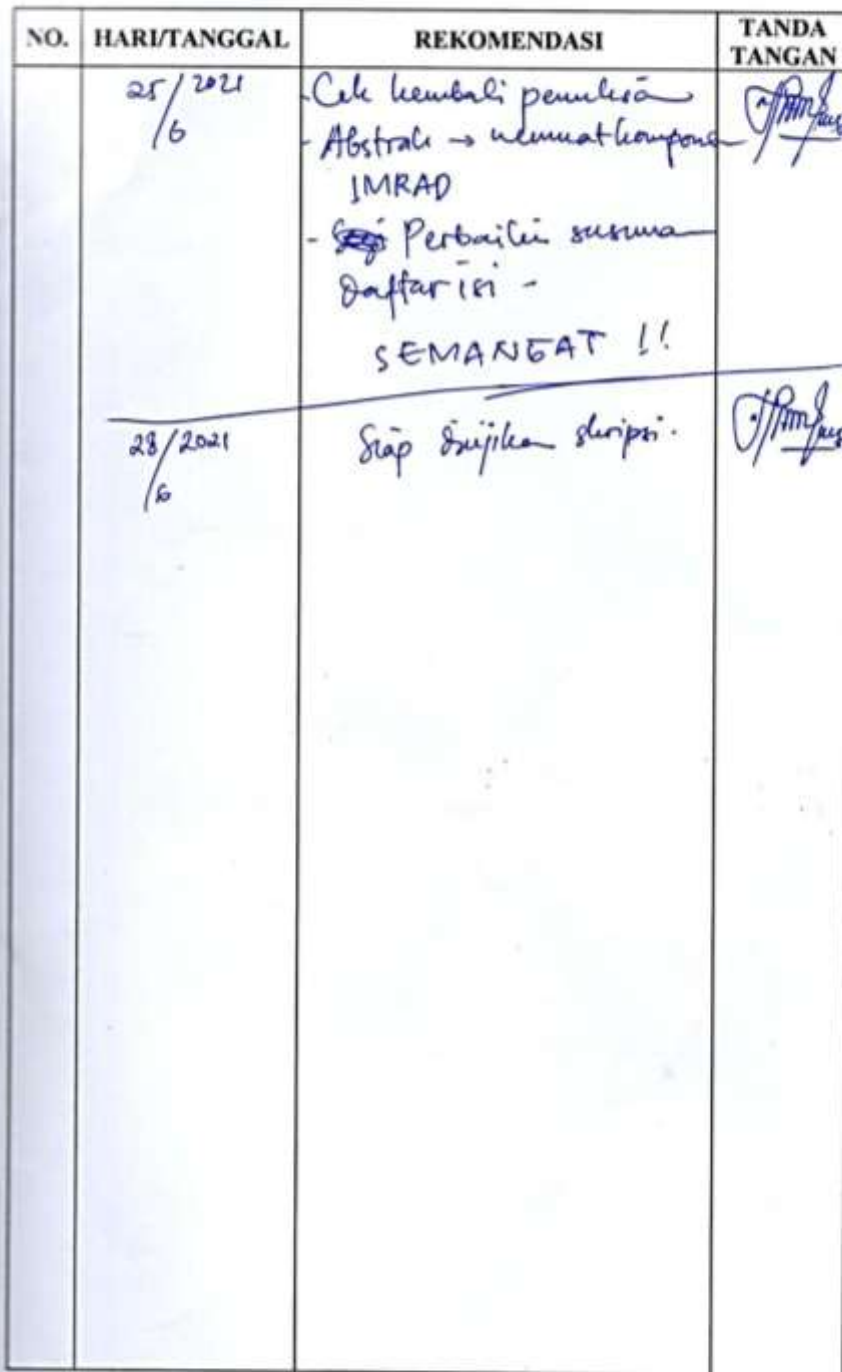 NO. HARI/TANGGAL REKOMENDASI TANDA TANGAN
25/6 2021 - Cek kembali penulisan
- Abstrak → memuat komponen
IMRAD
- Perbaiki susunan
daftar isi -
SEMANGAT !!
28/6 2021 Siap diujikan skripsi.